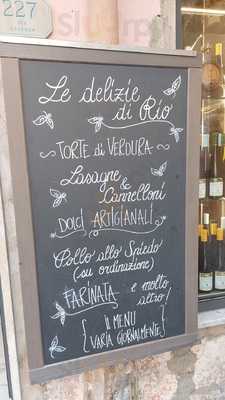 227
Le delizie
di Rió
TORTE di VERDURA
Lasagne
&
Cannelloni
DOLCI ARTIGIANALI
Pollo allo Spiedo
(su ordinazione)
FARINATA
e molto
altro!
{IL MENU
VARIA GIORNALMENTE}